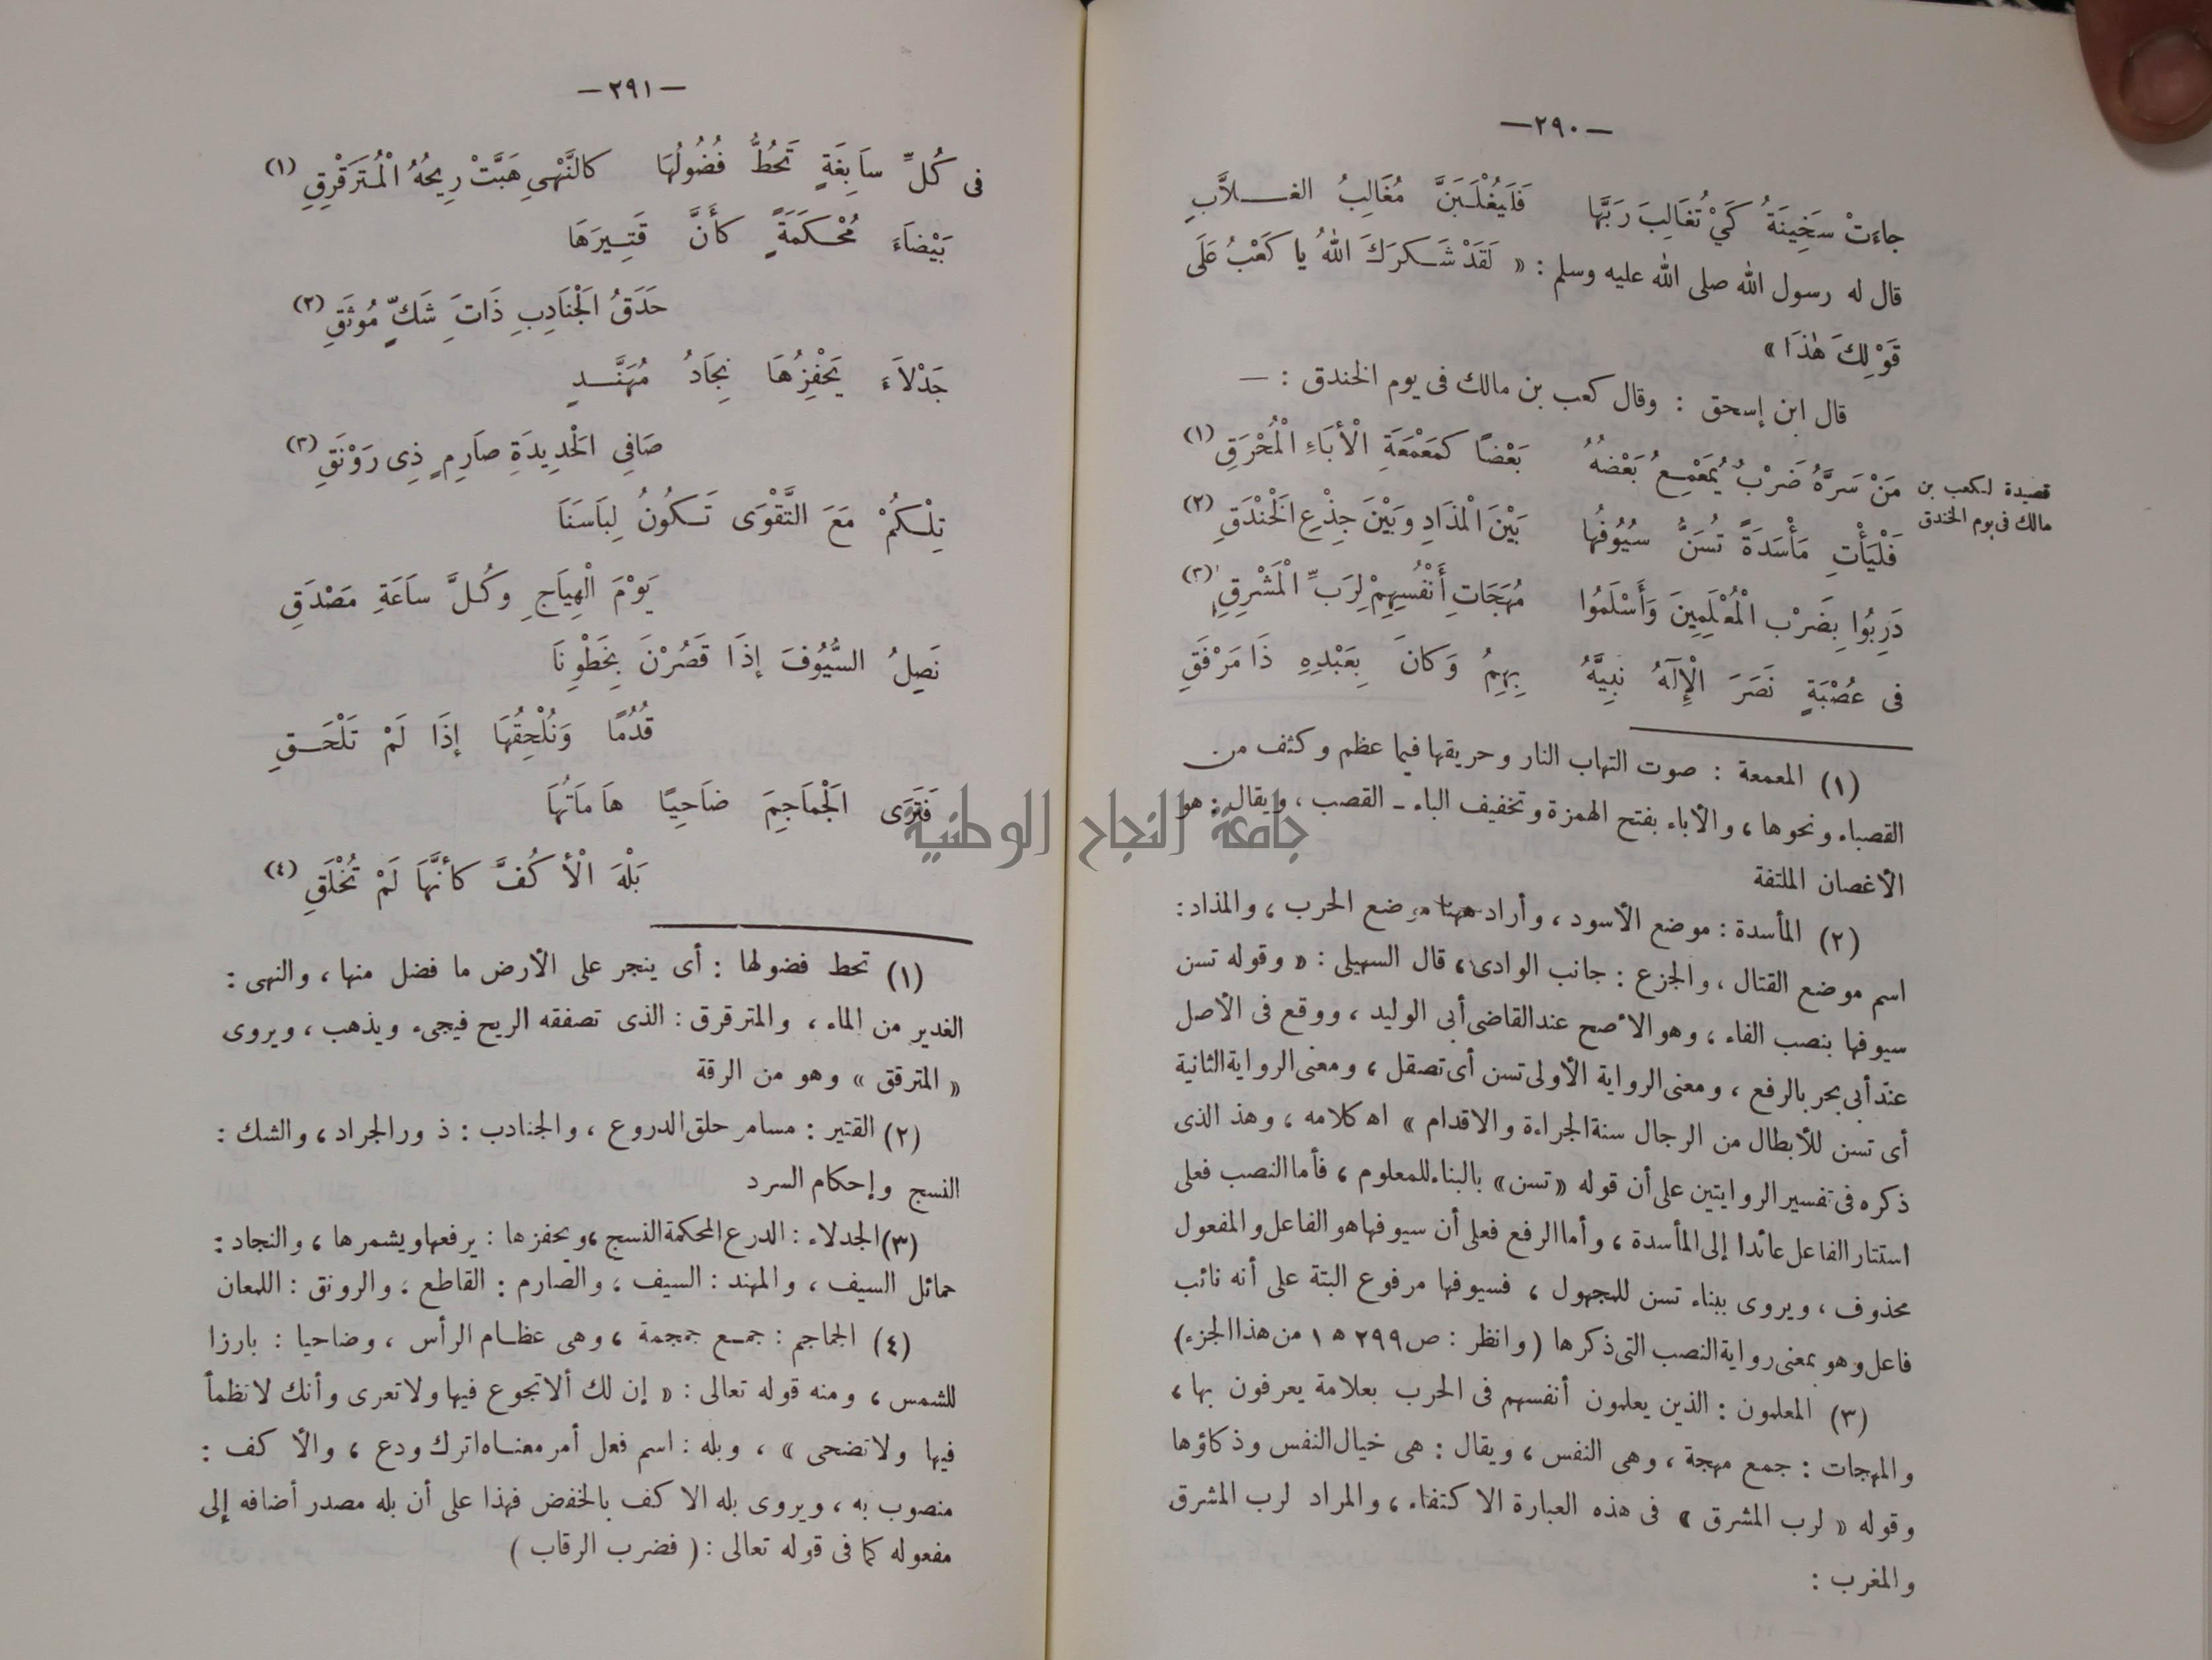 —٢٩٠—
جاءَتْ سَخِينَةُ كَيْ تُغَالِبَ رَبَّهَا فَلَيُغْلَبَنَّ مُغَالِبُ الغــلاَّبِ
قال له رسول الله صلى الله عليه وسلم : « لَقَدْ شَكرَكَ اللهُ يا كَعْبُ عَلَى
قَوْلِكَ هٰذَا »
قال ابن إسحق : وقال كعب بن مالك فى يوم الخندق : —
قصيدة لكعب بن
مالك فى يوم الخندق
مَنْ سَرَّهُ ضَرْبٌ يُمَعْمِعُ بَعْضُهُ بَعْضًا كمَعْمَعَةِ الْأَبَاءِ الْمُحْرَقِ (١)
فَلْيَأْتِ مَأْسَدَةً تُسَنُّ سُيُوُفُها بَيْنَ الْمَذَادِ وبَيْنَ جِذْعِ الَخْنْدَقِ (٢)
دَرِبُوا بِضَرْبِ الْمُعْلَمِينَ وَأَسْلَمُوا مُهَجَاتِ أَنْفُسِهِمْ لِرَبِّ الْمَشْرِقِ (٣)
فى عُصْبَةٍ نَصَرَ الْإِلَهُ نَبِيَّهُ بِهِمُ وَكانَ بِعَبْدِهِ ذَا مَرْفَقِ
(١) المعمعة : صوت التهاب النار وحريقها فيما عظم وكثف من
القصباء ونحوها ، والأباء بفتح الهمزة وتخفيف الباء ـ القصب ، ويقال : هو
الأغصان الملتفة
(٢) المأسدة : موضع الأسود ، وأراد ههنا موضع الحرب ، والمذاد :
اسم موضع القتال ، والجزع : جانب الوادى ، قال السهيلى : « وقوله تسن
سيوفها بنصب الفاء ، وهو الأصح عند القاضى أبى الوليد ، ووقع فى الأصل
عند أبى بحر بالرفع ، ومعنى الرواية الأولى تسن أى تصقل ، ومعنى الرواية الثانية
أى تسن للأبطال من الرجال سنة الجراءة والاقدام » اه كلامه ، وهذ الذى
ذكره فى تفسير الروايتين على أن قوله « تسن » بالبناء للمعلوم ، فأما النصب فعلى
استتار الفاعل عائدا إلى المأسدة ، وأما الرفع فعلى أن سيوفها هو الفاعل والمفعول
محذوف ، ويروى ببناء تسن للمجهول ، فسيوفها مرفوع البتة على أنه نائب
فاعل وهو بمعنى رواية النصب التى ذكرها ( وانظر : ص ٢٩٩ ه ١ من هذا الجزء )
(٣) المعلمون : الذين يعلمون أنفسهم فى الحرب بعلامة يعرفون بها ،
والمهجات : جمع مهجة ، وهى النفس ، ويقال : هى خيال النفس وذكاؤها
وقوله « لرب المشرق » فى هذه العبارة الاكتفاء ، والمراد لرب المشرق
والمغرب :
—٢٩١—
فى كُلِّ سَابِغَةٍ تَحُطُّ فُضُولُهَا كالنَّهْىِ هَبَّتْ رِيحُهُ الْمُتَرَقْرِقِ (١)
بَيْضَاءَ مُحْكَمَةٍ كأَنَّ قَتِيرَهَا
حَدَقُ الَجْنَادِبِ ذَاتِ شَكٍّ مُوثَقِ (٢)
جَدْلاَءَ يَحْفِزُهَا نِجَادُ مُهَنَّدٍ
صَافِى الَحْدِيدَةِ صَارِمٍ ذِى رَوْنَقِ (٣)
تِلْكمُ مَعَ التَّقْوَى تَكُونُ لِبَاسَنَا
يَوْمَ الْهِيَاجِ وكُلَّ سَاعَةِ مَصْدَقِ
نَصِلُ السُّيُوُفَ إذَا قَصُرْنَ بِخَطْوِنَا
قُدُمًا وَنُلْحِقُهَا إذَا لَمْ تَلْحَقِ
فَتَرَى الَجْمَاجِمَ ضَاحِيًا هَامَاتُهَا
بَلْهَ الْأَكُفَّ كأنَّهَا لَمْ تُخْلَقِ (٤)
جامعة النجاح الوطنية
(١) تحط فضولها : أى ينجر على الأرض ما فضل منها ، والنهى :
الغدير من الماء ، والمترقرق : الذى تصفقه الريح فيجىء ويذهب ، ويروى
« المترقق » وهو من الرقة
(٢) القتير : مسامر حلق الدروع ، والجنادب : ذ ور الجراد ، والشك :
النسج وإحكام السرد
(٣) الجدلاء : الدرع المحكمة النسج ، ويحفزها : يرفعها ويشمرها ، والنجاد :
حمائل السيف ، والمهند : السيف ، والصارم : القاطع ، والرونق : اللمعان
(٤) الجماجم : جمع جمجمة ، وهى عظام الرأس ، وضاحيا : بارزا
للشمس ، ومنه قوله تعالى : « إن لك ألا تجوع فيها ولا تعرى وأنك لا تظمأ
فيها ولا تضحى » ، وبله : اسم فعل أمر معناه اترك ودع ، والأكف :
منصوب به ، ويروى بله الاكف بالخفض فهذا على أن بله مصدر أضافه إلى
مفعوله كما فى قوله تعالى : ( فضرب الرقاب )